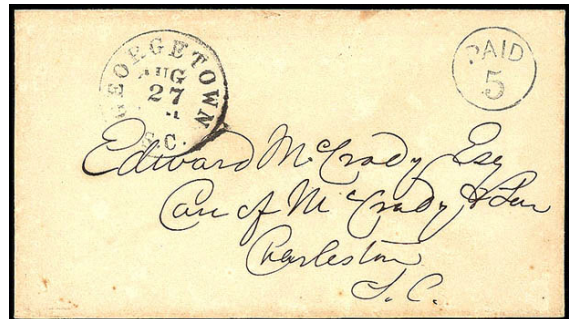 GEORGETOWN
AUG
27
S.C.
PAID
5
Edward McCrady Esq
Care of McCrady & Son
Charleston
S.C.